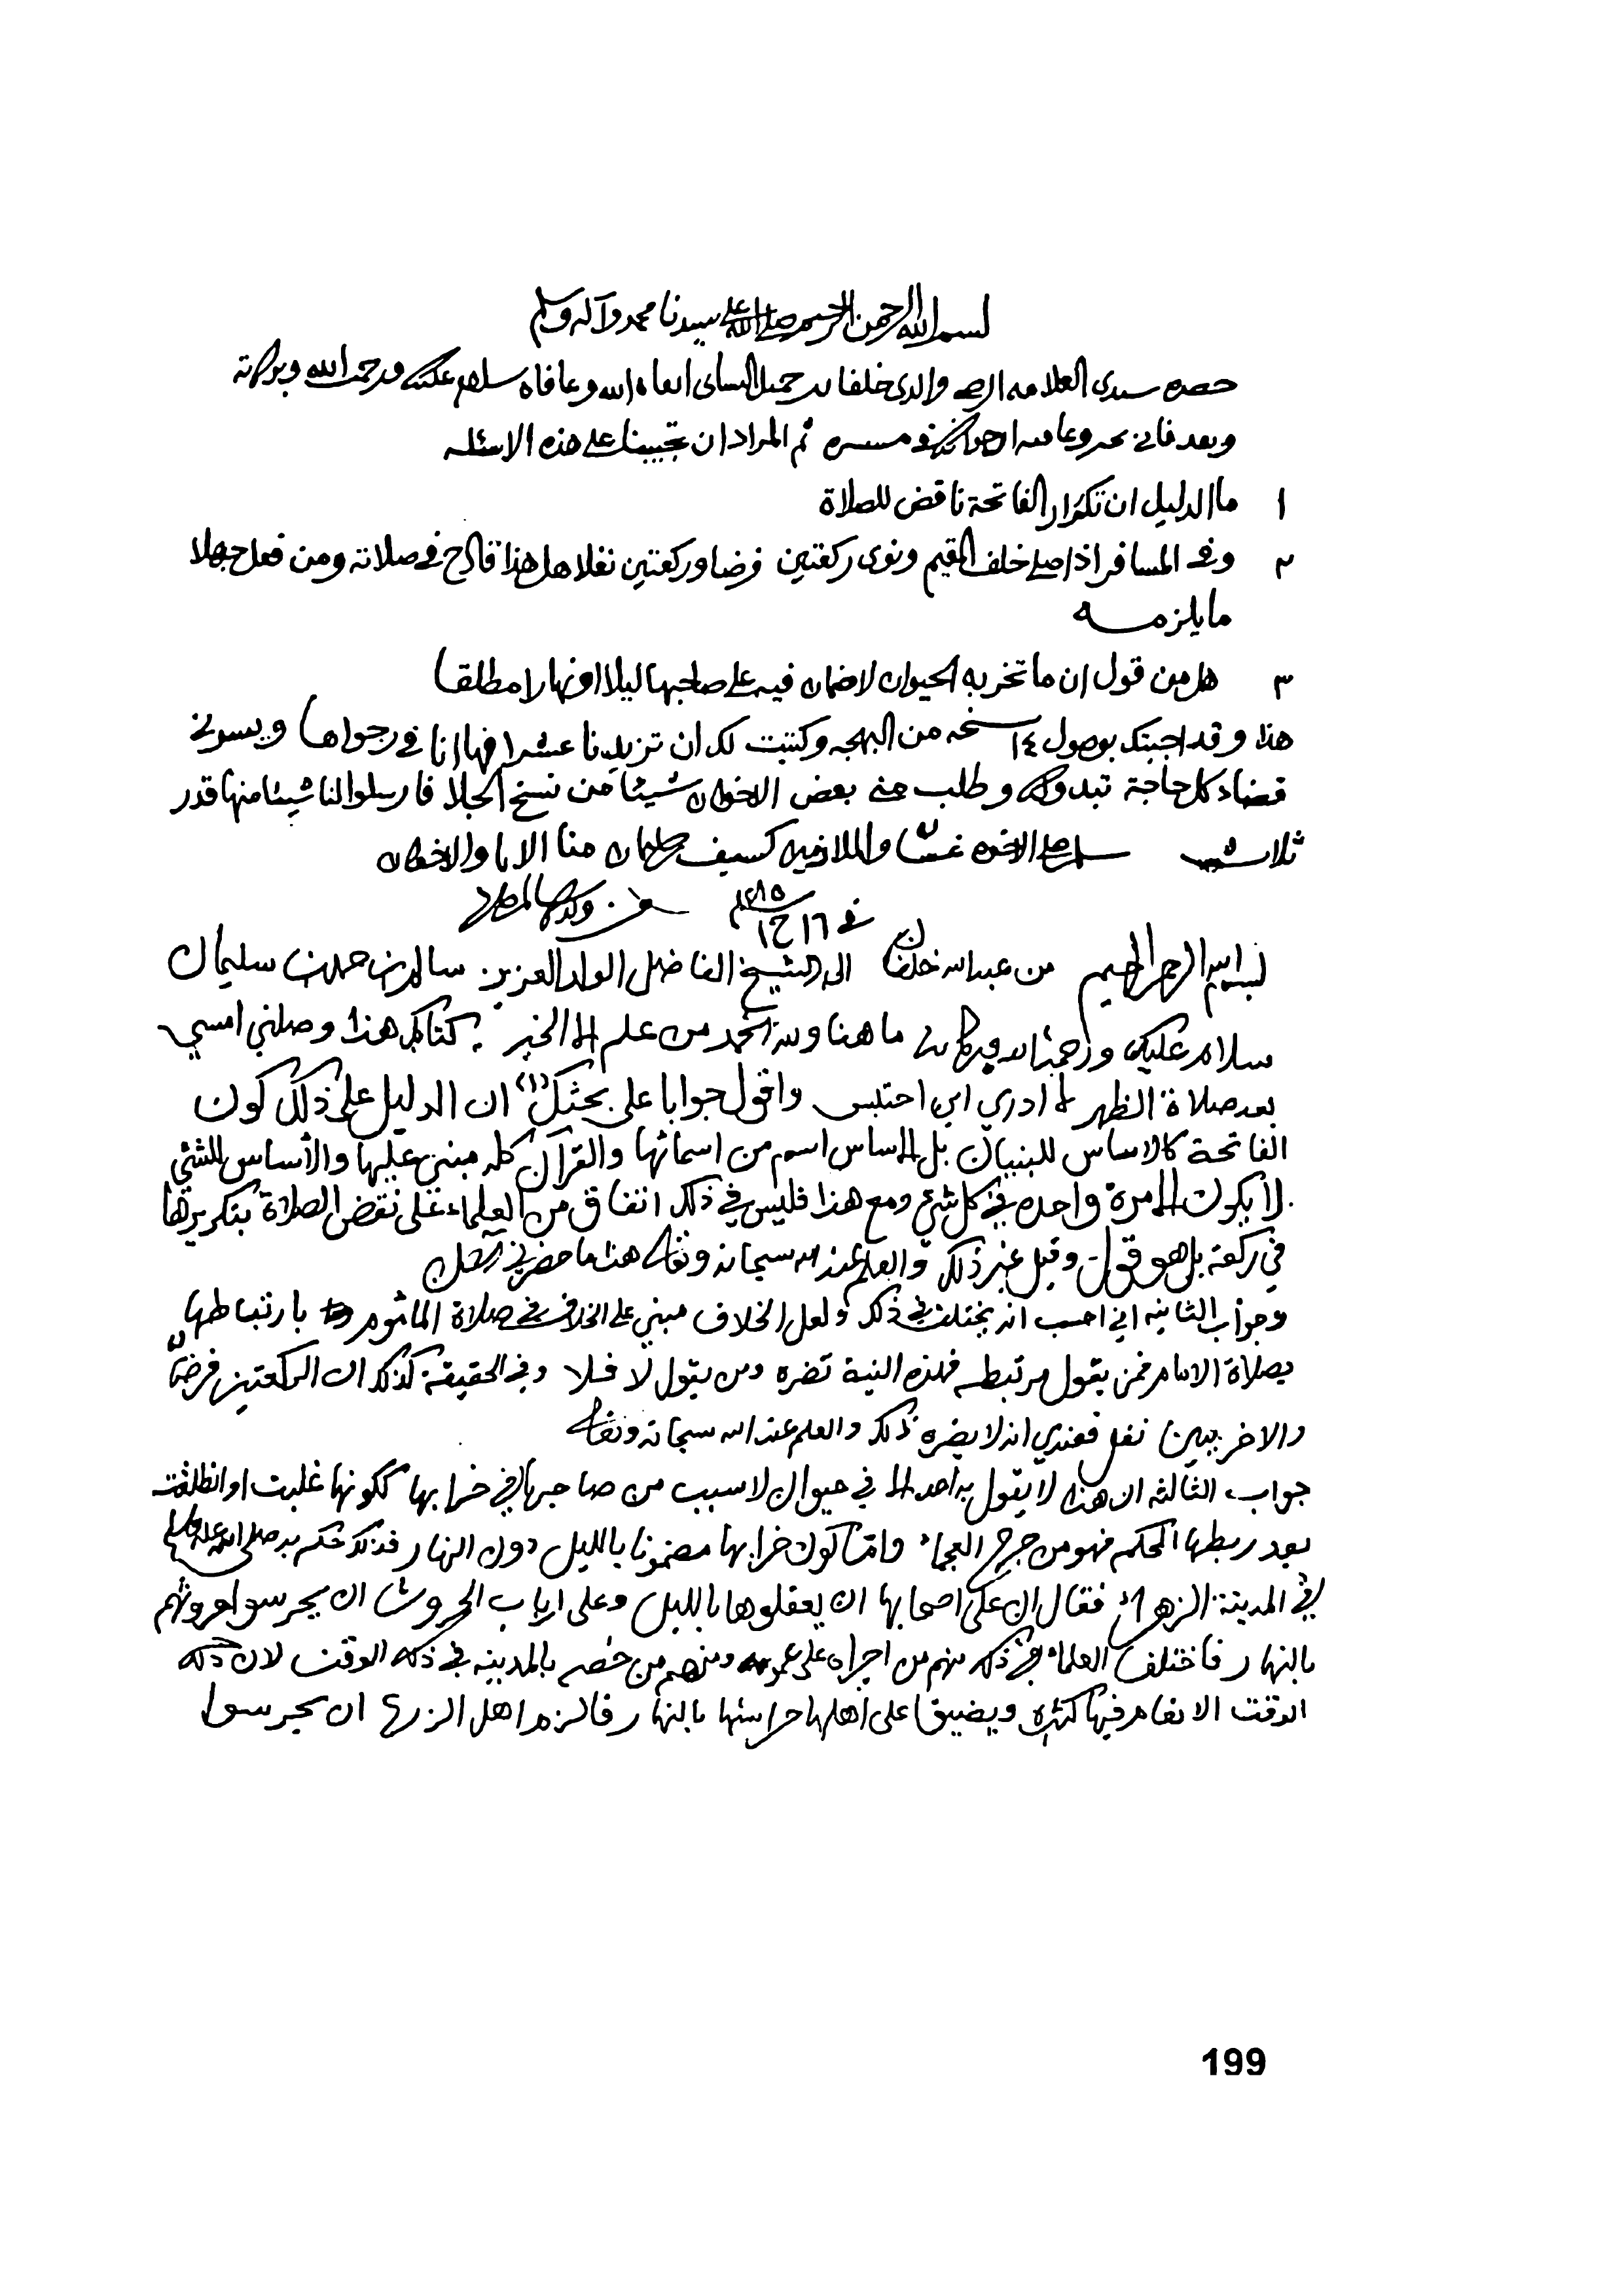 بسم الله الرحمن الرحيم صلى الله على سيدنا محمد وآله وسلم
حضرة سيدي العلامه الرضي والدي خلفان بن جميل السيابي ابقاه الله وعافاه سلام عليك ورحمت الله وبركاته
وبعد فاني بخير وعافيه ارجوا ثم المراد ان تجيبنا على هذه الاسئله
١ ما الدليل ان تكرار الفاتحة ناقض للصلاة
٢ وفي المسافر اذا صلى خلف المقيم ونوى ركعتين فرضا وركعتين نفلا هل هذا قادح في صلاته ومن فعل جهلا
ما يلزمه
٣ هل من قول ان ما تخربه الحيوان لا ضمان فيه على صاحبها ليلا او نهارا مطلقا
هذا وقد اجبتك بوصول ١٤ نسخه من البهجه وكتبت لك ان تزيدنا عشرا فها انا في رجواها ويسرني
قضاء كل حاجة تبدو لك وطلب مني بعض الاخوان شيئا من نسخ الجلا فارسلوا لنا شيئا منها قدر
ثلاث سلم على الاخوه والملازمين كسيف منا الابا والاخوان
في ١٦ ج ١ من ولدك
بسم الله الرحمن الرحيم من عبد الله خلفان الى الشيخ الفاضل الولد العزيز سالم بن حمد بن سليمان
سلام عليك ورحمة الله وبركاته ما هنا ولله الحمد من علم الا الخير كتابك هذا وصلني امسي
بعد صلاة الظهر لا ادري اين احتبس واقول جوابا على بحثك (١) ان الدليل على ذلك كون
الفاتحة كالاساس للبنيان بل الاساس اسم من اسمائها والقرآن كله مبني عليها والأساس للشئي
لا يكون الا مرة واحده في كل شئي ومع هذا فليس في ذلك اتفاق من العلماء على نقض الصلاة بتكريرها
في ركعة بل هو قول وقيل غير ذلك والعلم عند الله سبحانه وتعالى هذا ما حضرني
وجواب الثانيه اني احسب انه يختلف في ذلك ولعل الخلاف مبني على الخلاف في صلاة المأموم بارتباطها
بصلاة الامام فمن يقول مرتبطه فهذه النية تضره ومن يقول لا فلا وفي الحقيقة كذلك ان الركعتين فرضا
والاخريين نفل فعندي انه لا يضره ذلك والعلم عند الله سبحانه وتعالى
جواب الثالثه ان هذا لا يقول به احد الا في حيوان لا سبب من صاحبها في خرابها ككونها غلبت او انطلقت
بعد ربطها المحكم فهو من جرح العجماء واما كون خرابها مضمونا بالليل دون النهار فذلك حكم به صلى الله عليه وسلم
في المدينة الزهراء فقال ان على اصحابها ان يعقلوها بالليل وعلى ارباب الحروث ان يحرسوا حروثهم
بالنهار فاختلف العلماء في ذلك منهم من اجراه على عمومه ومنهم من خصه بالمدينه في ذلك الوقت لان ذلك
الوقت الانعام فيها كثيره ويضيق على اهلها حراستها بالنهار فالزم اهل الزرع ان يحرسوا
199